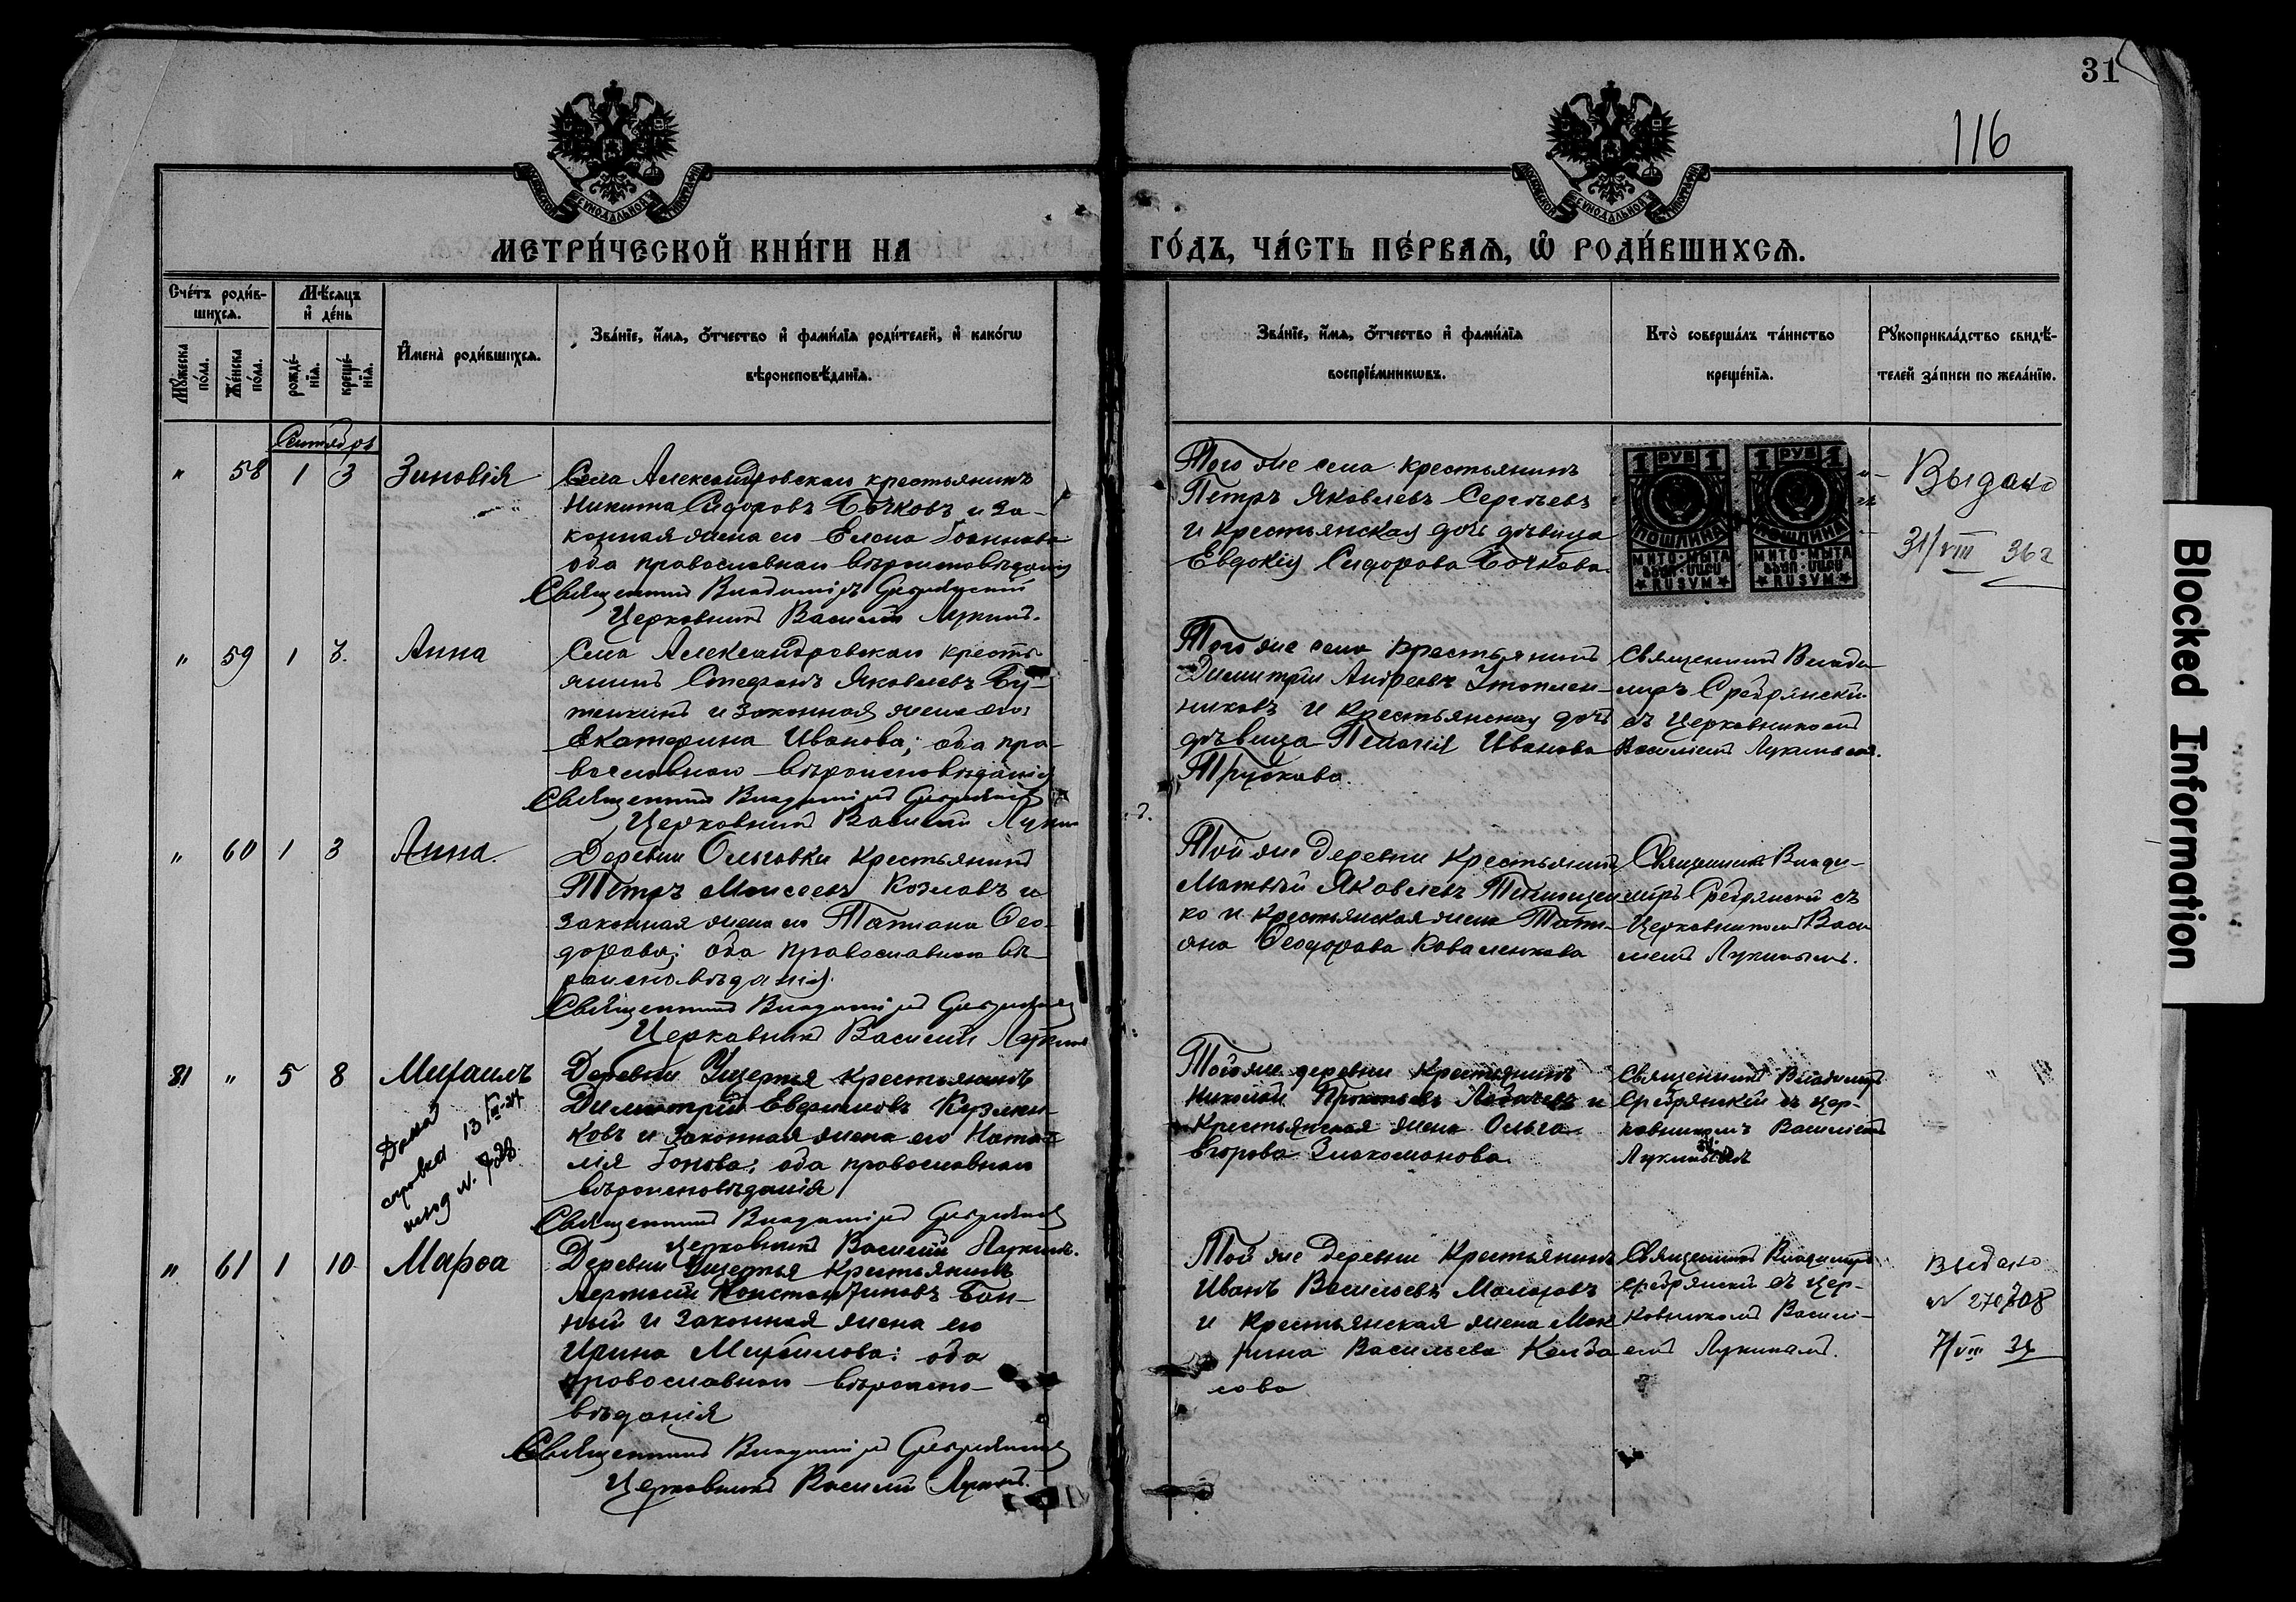 31
116
МЕТРИ́ЧЕСКОЙ КНИ́ГИ НА
ГО́ДЪ, ЧА́СТЬ ПЕ́РВАЯ, Ѡ҆ РОДИ́ВШИХСЯ.
Сче́тъ роди́в-
шихся.
Мѣ́сяцъ
и҆ де́нь
Мꙋ́жеска
по́ла.
Же́нска
по́ла.
рожде́-
нїя.
креще́-
нїя.
И҆мена̀ роди́вшихся.
Зва́нїе, и҆́мя, ѻ҆́тчество и҆ фами́лїя роди́телей, и҆ како́гѡ
вѣроисповѣ́данїя.
Зва́нїе, и҆́мя, ѻ҆́тчество и҆ фами́лїя
воспрїе́мникѡвъ.
Кто̀ соверша́лъ та́инство
креще́нїя.
Рꙋкоприкла́дство свидѣ́-
телей за́писи по жела́нїю.
Сентябрь
" 58 1 3 Зиновія
Села Александровскаго крестьянинъ
Никита Сидоровъ Бочковъ и за-
конная жена его Елена Іоаннова
оба православнаго вѣроисповѣданія
Священникъ Владиміръ Сребрянскій
Церковникъ Василій Лукинъ.
Того же села крестьянинъ
Петръ Яковлевъ Сергѣевъ
и крестьянская дочь дѣвица
Евдокія Сидорова Бочкова.
1 РУБ 1
ПОШЛИНА
МИТО · МЫТА
RUSVM
1 РУБ 1
ПОШЛИНА
МИТО · МЫТА
RUSVM
Выдано
31/VIII 36 г
" 59 1 3. Анна
Села Александровскаго кресть-
янинъ Стефанъ Яковлевъ Бу-
тенкинъ и законная жена его
Екатерина Иванова; оба пра-
вославнаго вѣроисповѣданія
Священникъ Владиміръ Сребрянскій
Церковникъ Василій Лукинъ
Того же села крестьянинъ
Димитрій Андреевъ Утоплен-
никовъ и крестьянская дочь
дѣвица Пелагія Иванова
Трускова.
Священникъ Влади-
міръ Сребрянскій
съ Церковникомъ
Василіемъ Лукинымъ.
" 60 1 3 Анна.
Деревни Ольговки крестьянинъ
Петръ Моисеевъ Козловъ и
законная жена его Татіана Ѳео-
дорова; оба православнаго вѣ-
роисповѣданія.
Священникъ Владиміръ Сребрянскій
Церковникъ Василій Лукинъ
Той же деревни крестьянинъ
Матвѣй Яковлевъ Тимощен
ко и крестьянская жена Тати-
ана Ѳеодорова Коваленкова
Священникъ Влади-
міръ Сребрянскій съ
Церковникомъ Васи
ліемъ Лукинымъ.
31 " 5 8 Михаилъ
Дана
справка 13
исход №. 728
Деревни Ущерпья крестьянинъ
Димитрій Евфимовъ Кузмен-
ковъ и законная жена его Ната-
лія Іонова; оба православнаго
вѣроисповѣданія
Священникъ Владиміръ Сребрянскій
Церковникъ Василій Лукинъ.
Той же деревни крестьянинъ
Николай Прокопьевъ и
крестьянская жена Ольга
Егорова
Священникъ Владиміръ
Сребрянскій съ Цер-
ковникомъ Василіемъ
Лукинымъ
" 61 1 10 Марѳа
Деревни Ущерпья крестьянинъ
Константиновъ Бон-
ный и законная жена его
Ирина Михаилова; оба
православнаго вѣроиспо-
вѣданія
Священникъ Владиміръ Сребрянскій
Церковникъ Василій Лукинъ.
Той же деревни крестьянинъ
Иванъ Васильевъ Молоковъ
и крестьянская жена
Васильева
Священникъ Владиміръ
Сребрянскій съ Цер-
ковникомъ Васили-
емъ Лукинымъ.
Выдано
№ 270308
7/VIII 34
Blocked Information